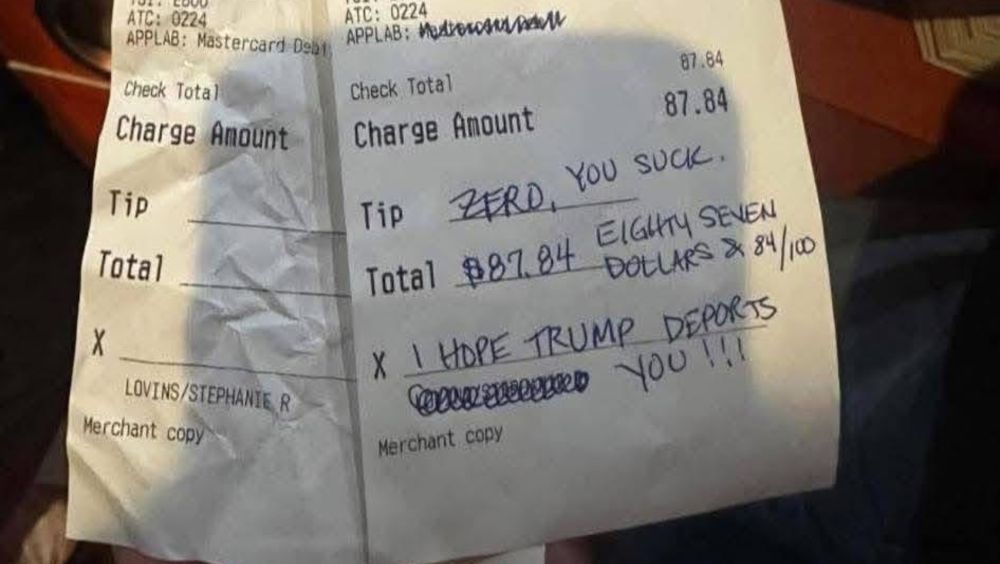 ATC: 0224
APPLAB: Mastercard Debi
Check Total
Charge Amount
Tip
Total
X
LOVINS/STEPHANIE R
Merchant copy
ATC: 0224
APPLAB:
Check Total 87.84
Charge Amount 87.84
Tip ZERO, YOU SUCK.
Total $87.84 EIGHTY SEVEN
DOLLARS & 84/100
X I HOPE TRUMP DEPORTS
YOU !!!
Merchant copy